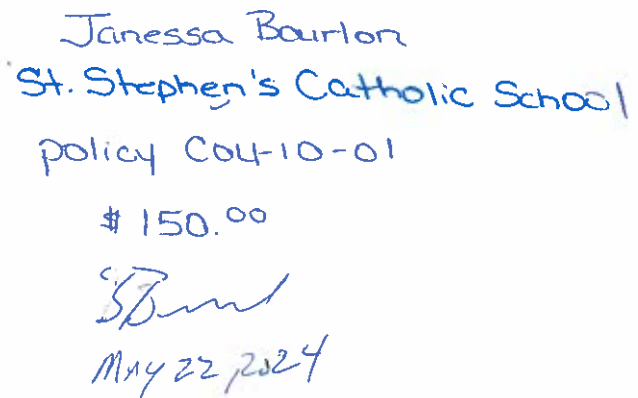 Janessa Bourlon
St. Stephen's Catholic School
policy C04-10-01
$ 150.00
May 22, 2024